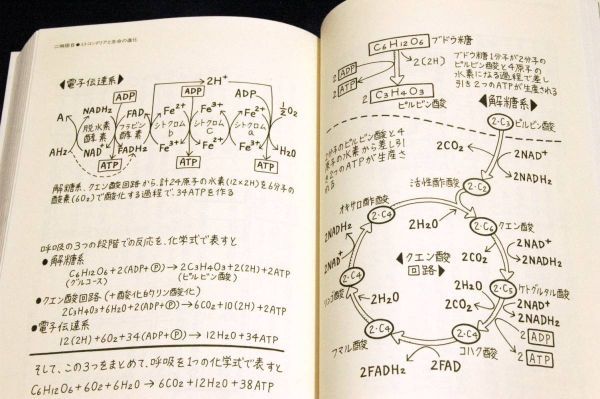 二時限目●ミトコンドリアと生命の進化
◀電子伝達系▶
2H⁺
ADP
ADP
ADP
1/2O₂
A
NADH₂
FAD
Fe²⁺
Fe²⁺
Fe²⁺
脱水素酵素
フラビン酵素
シトクロムb
シトクロムC
シトクロムa
Fe³⁺
Fe³⁺
Fe³⁺
AH₂
NAD⁺
FADH₂
H₂O
ATP
ATP
ATP
解糖系、クエン酸回路から、計24原子の水素(12×2H)を6分子の
酸素(6O₂)で酸化する過程で、34ATPを作る
呼吸の3つの段階での反応を、化学式で表すと
●解糖系
C₆H₁₂O₆+2(ADP+Ⓟ)→2C₃H₄O₃+2(2H)+2ATP
(グルコース)
(ピルビン酸)
●クエン酸回路(+酸化的リン酸化)
2C₃H₄O₃+6H₂O+2(ADP+Ⓟ)→6CO₂+10(2H)+2ATP
●電子伝達系
12(2H)+6O₂+34(ADP+Ⓟ)→12H₂O+34ATP
そして、この3つをまとめて、呼吸を1つの化学式で表すと
C₆H₁₂O₆+6O₂+6H₂O→6CO₂+12H₂O+38ATP
C₆H₁₂O₆
ブドウ糖
2 ADP
2 ATP
2(2H)
2 C₃H₄O₃
ピルビン酸
ブドウ糖1分子が2分子の
ピルビン酸と4原子の
水素になる過程で差し
引き2つのATPが生産される
◀解糖系▶
2分子のピルビン酸と4
原子の水素から差し引
き2つのATPが生産さ
れる
2·C₃
ピルビン酸
2CO₂
2NAD⁺
2NADH₂
活性酢酸
2·C₂
オキサロ酢酸
2·C₄
2H₂O
2·C₆
クエン酸
2NADH₂
2NAD⁺
2NAD⁺
2CO₂
2NADH₂
◀クエン酸回路▶
2·C₄
リンゴ酸
2H₂O
2H₂O
2CO₂
2·C₅
ケトグルタル酸
2NAD⁺
2NADH₂
2 ADP
2 ATP
2·C₄
フマル酸
2·C₄
コハク酸
2FADH₂
2FAD